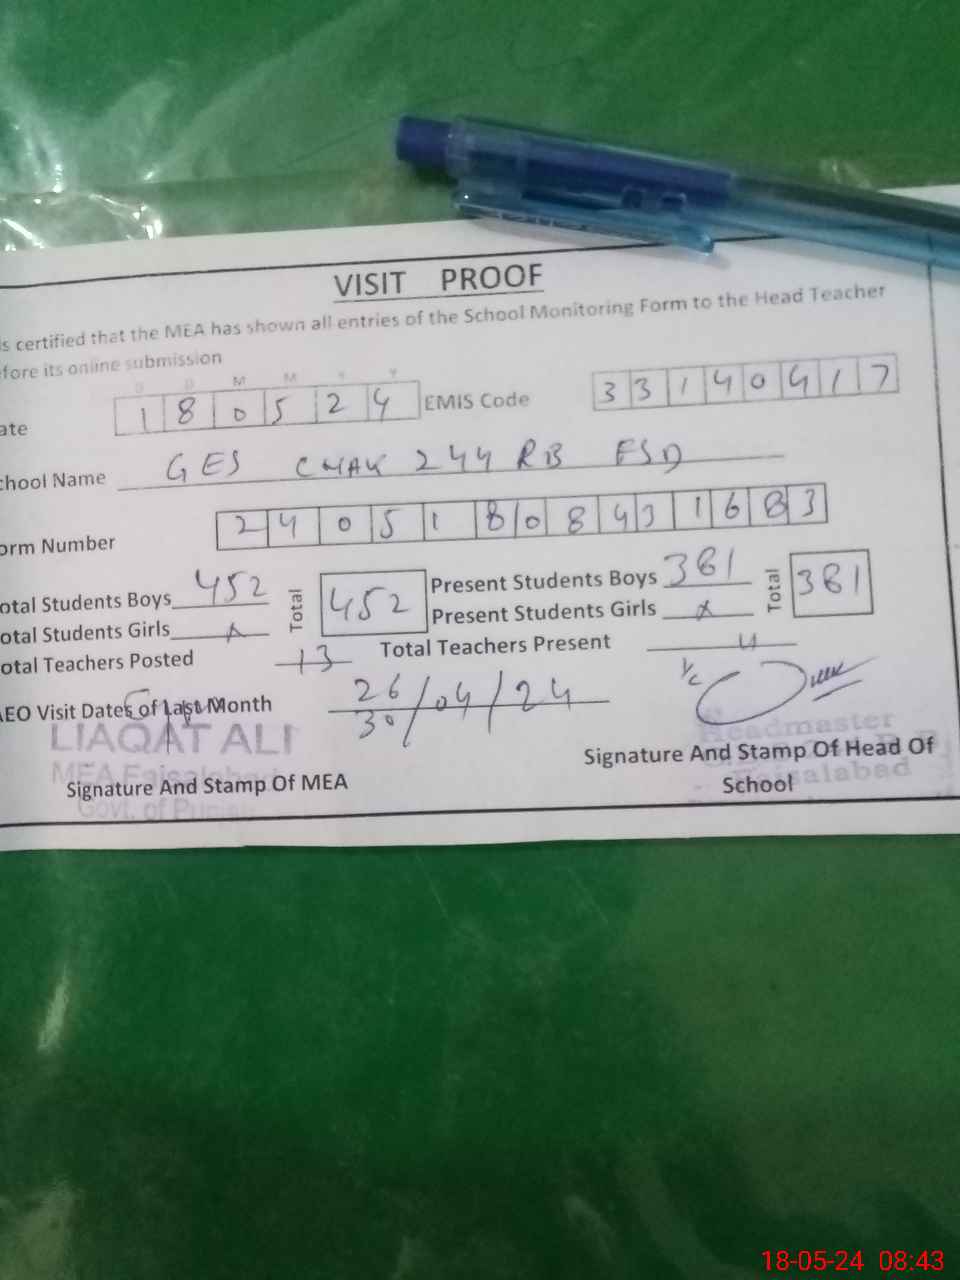 VISIT PROOF
s certified that the MEA has shown all entries of the School Monitoring Form to the Head Teacher
fore its online submission
D D M M Y Y
ate 1 8 0 5 2 4 EMIS Code 3 3 1 4 0 4 1 7
chool Name GES CHAK 244 RB FSD
orm Number 2 4 0 5 1 8 0 8 4 3 1 6 8 3
otal Students Boys 452 Total 452 Present Students Boys 381 Total 381
otal Students Girls x Present Students Girls x
otal Teachers Posted 13 Total Teachers Present
AEO Visit Dates of Last Month 26/04/24
30
LIAQAT ALI
MEA Faisalabad
Govt. of Punjab
Signature And Stamp Of MEA
Headmaster
Faisalabad
Signature And Stamp Of Head Of
School
18-05-24 08:43